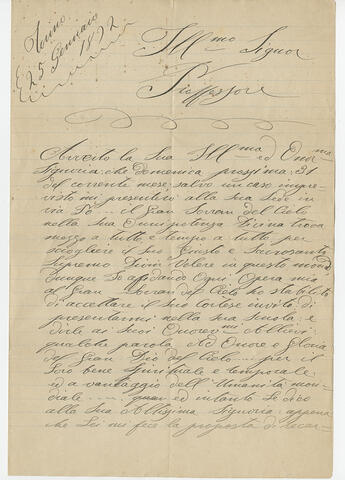 Torino
25 Gennaio
1892
Ill.mo Signor
Professore
Avverto la Sua Ill.ma ed Onor.ma
Signoria: che domenica prossima: 31
del corrente mese, salvo un caso impre-
visto mi presenterò alla Sua Sede in
via Pò... il Gran Sovran del Cielo
nella Sua Onnipotenza Divina trova
mezzo a tutto e tempo a tutto per
sciogliere il Suo Giusto e Sacrosanto
Supremo Divin Volere in questo mondo
dunque Io affidando Ogni Opera mia
al Gran Sovran del Cielo ho stabilito
di accettare il Suo cortese invito di
presentarmi nella Sua Scuola e
dirle ai Suoi Onorev.mi Allievi:
qualche parola, Ad Onore e Gloria
del Gran Dio del Cielo... per il
loro bene Spirituale e temporale
ed a vantaggio dell'Umanità mon-
diale... ed intanto Io dico
alla Sua Altissima Signoria: appena
che Lei mi fece la proposta di recar-